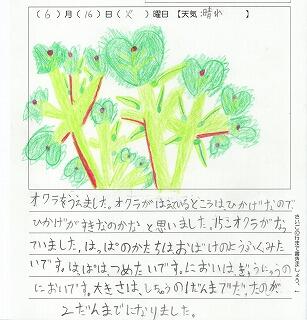 (6)月(16)日(火)曜日【天気:晴れ】
オクラをうえました。オクラがはえているところはひかげなので
ひかげがすきなのかなと思いました。ぼくのオクラがなっ
ていました。はっぱのかたちはおばけのようふくみた
いです。はっぱはつめたいです。においは、ぎゅうにゅうの
においです。大きさは、しちゅうの1だんまでだったのが
2だんまでになりました。